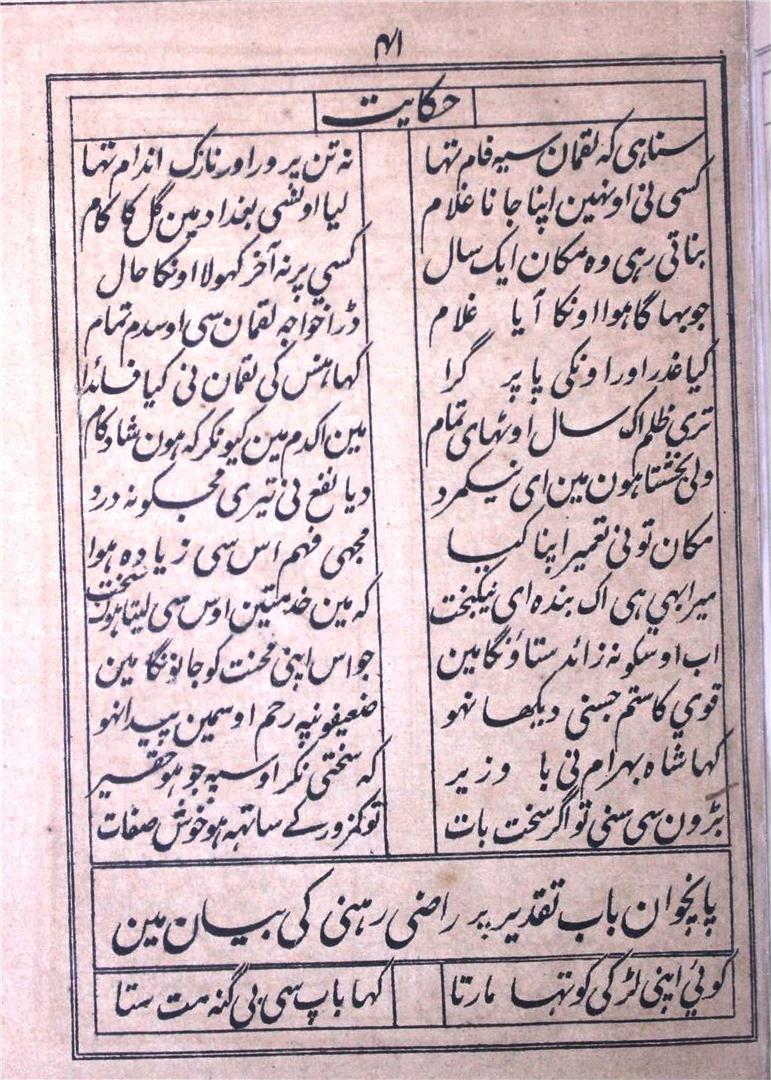 ۴۱
حکایت
سنا ہی کہ لقمان سیہ فام تہا نہ تن پرور اور نازک اندام تہا
کسی نی اونہین اپنا جانا غلام لیا اونسی بغداد مین گل کا کام
بناتی رہی وہ مکان ایک سال کسی پر نہ آخر کہولا اونکا حال
جو بہاگا ہوا اونکا آیا غلام ڈرا خواجہ لقمان سی اوسدم تمام
کیا عذر اور اونکی پا پر گرا کہا ہنس کی لقمان نی کیا فائدا
تری ظلم اک سال اوٹہای تمام مین اکدم مین کیونکر کہ ہون شادکام
ولی بخشتا ہون مین ای نیکمرد دیا نفع نی تیری مجکو نہ درد
مکان تو نی تعمیر اپنا کیا مجہی فہم اس سی زیادہ ہوا
میرا بہی ہی اک بندہ ای نیکبخت کہ مین خدمتین اوس سی لیتا ہون سخت
اب اوسکو نہ زائد ستاؤنگا مین جو اس اپنی محنت کو جانونگا مین
قوی کا ستم جسنی دیکہا نہو ضعیفونپہ رحم اوسمین پیدا نہو
کہا شاہ بہرام نی با وزیر کہ سختی نکر اوسپہ جو ہو حقیر
بڑون سی سنی تو اگر سخت بات تو کمزور کے ساتہہ ہو خوش صفات
پانچوان باب تقدیر پر راضی رہنی کی بیان مین
کوئی اپنی لڑکی کو تہا مارتا کہا باپ سی بی گنہ مت ستا